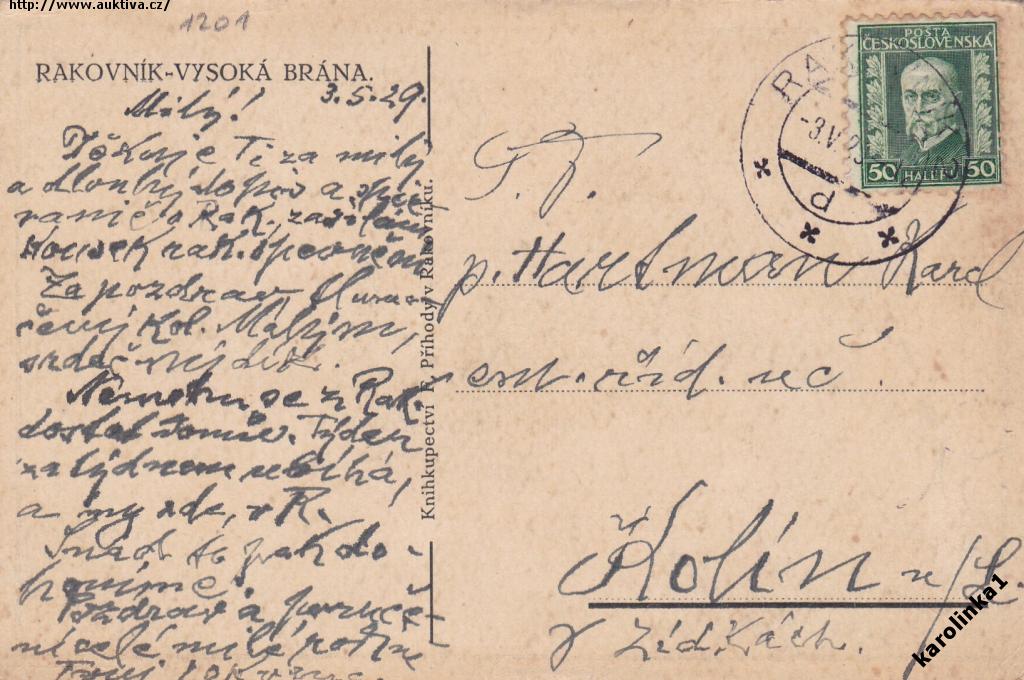 http://www.auktiva.cz/
1201
RAKOVNÍK-VYSOKÁ BRÁNA.
3.5.29.
Milý!
Děkuji Ti za milý
a dlouhý dopis a
o Rak. zaslání
rak.
Za pozdrav
kol. Malým,
srdečný dík.
Nemohu se z Rak.
dostat domů. Týden
za týdnem ubíhá,
a my zde, v R.
Snad to pak do-
honíme.
Pozdrav a poruče-
ní celé milé rodině
Tvůj
Knihkupectví F. Příhody v Rakovníku.
POSTA
ČESKOSLOVENSKÁ
50 HALÉŘŮ 50
RA
-3.V.29
P. T.
p. Hartman Karel
říd. uč.
Kolín n/L.
v Zídkách.
karolinka1